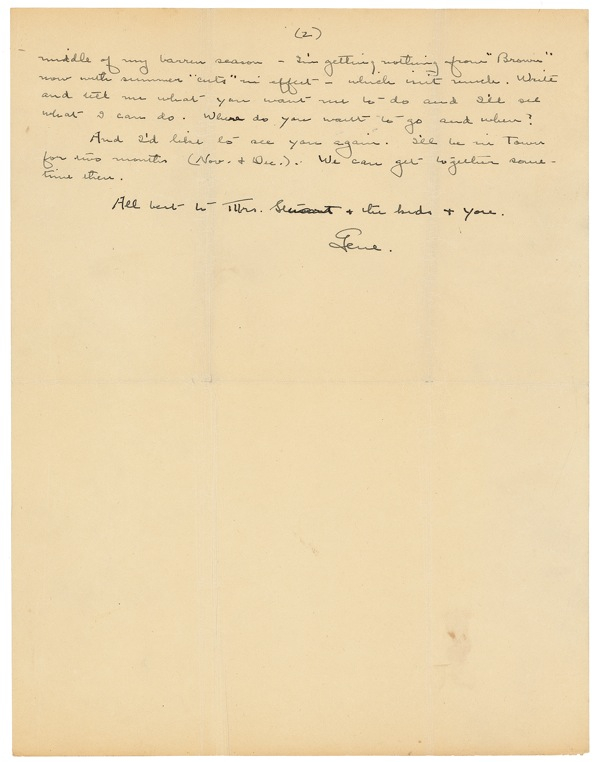 (2)
middle of my barren season - I'm getting nothing from "Brown"
now with summer "cuts" in effect - which isn't much. Write
and tell me what you want me to do and I'll see
what I can do. Where do you want to go and when?
And I'd like to see you again. I'll be in Town
for two months (Nov. & Dec.). We can get together some-
time then.
All best to Mrs. Stuart & the kids & you.
Gene.